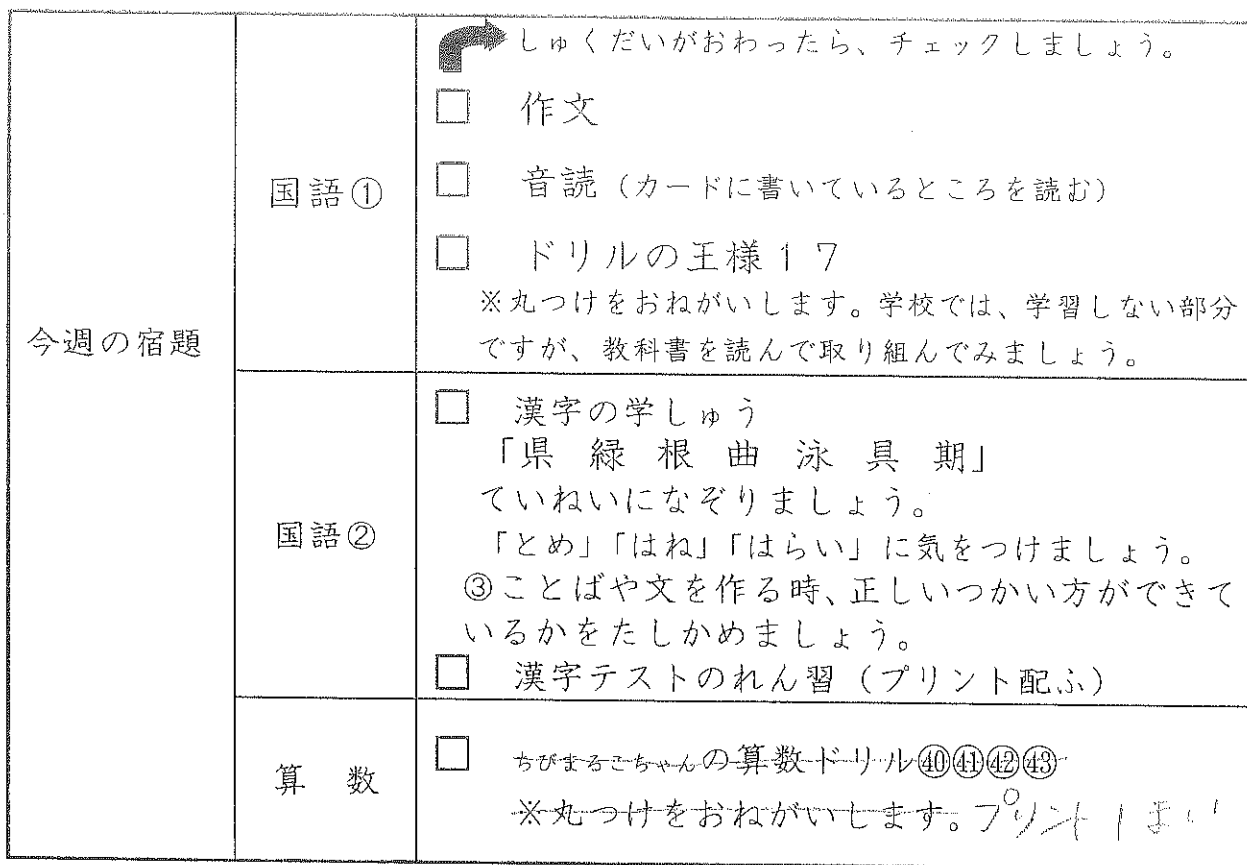 しゅくだいがおわったら、チェックしましょう。
今週の宿題
国語①
□ 作文
□ 音読(カードに書いているところを読む)
□ ドリルの王様17
※丸つけをおねがいします。学校では、学習しない部分
ですが、教科書を読んで取り組んでみましょう。
国語②
□ 漢字の学しゅう
「県 緑 根 曲 泳 具 期」
ていねいになぞりましょう。
「とめ」「はね」「はらい」に気をつけましょう。
③ことばや文を作る時、正しいつかい方ができて
いるかをたしかめましょう。
□ 漢字テストのれん習(プリント配ふ)
算 数
□ ちびまるこちゃんの算数ドリル㊵㊶㊷㊸
※丸つけをおねがいします。プリント1まい